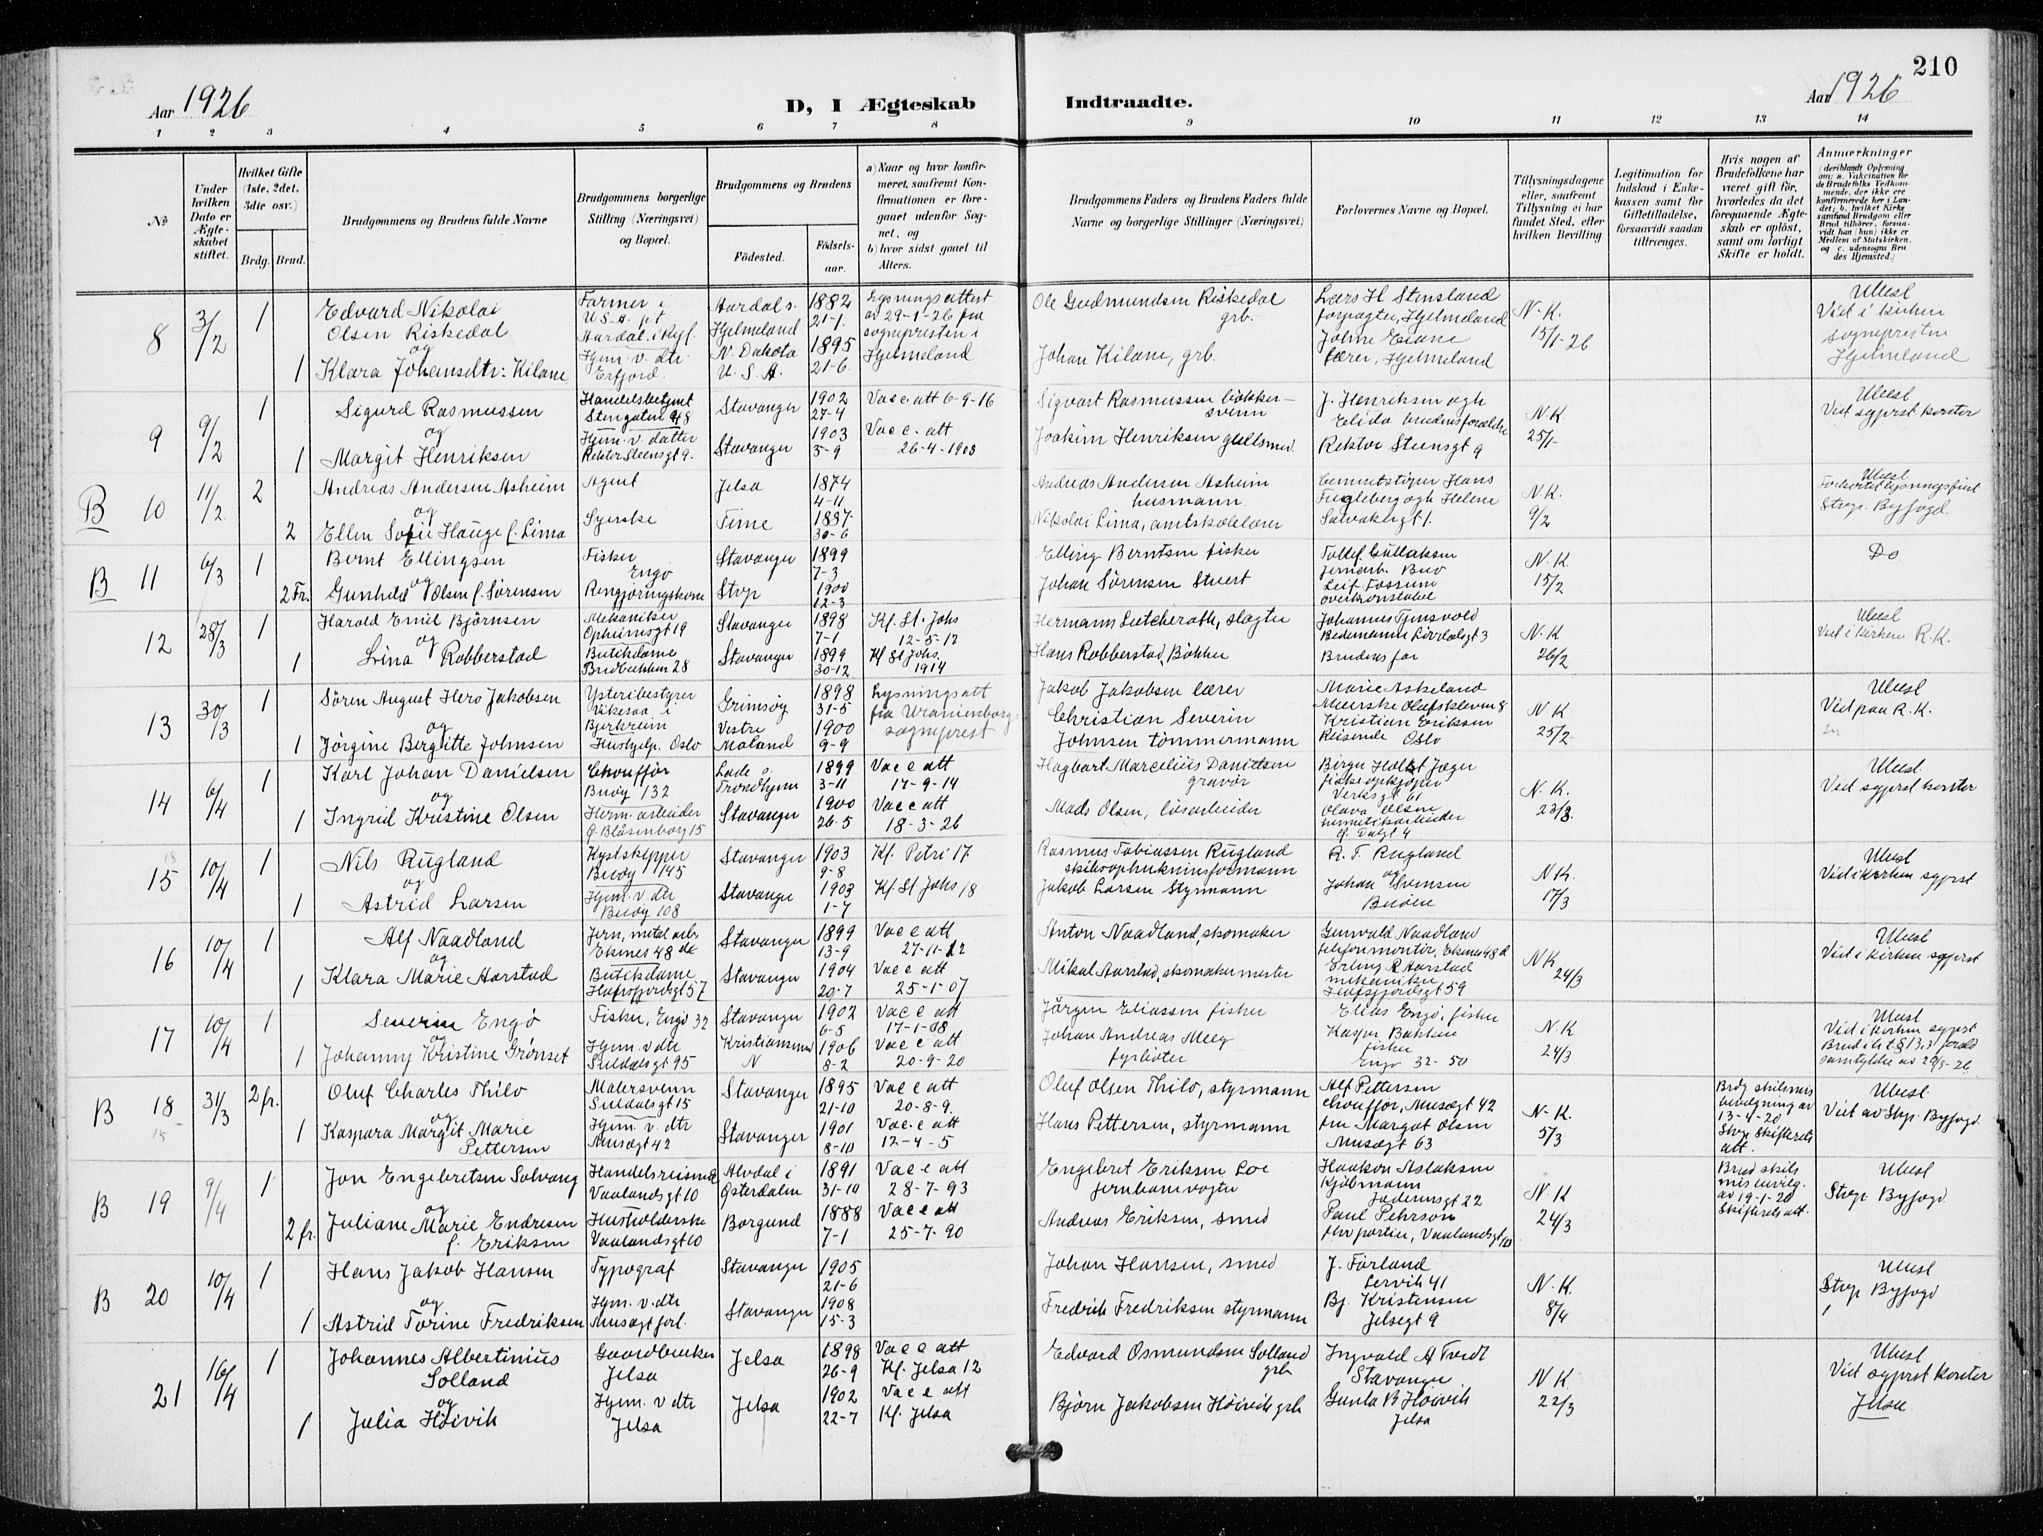 210
Aar 1926
D, I Ægteskab Indtraadte.
Aar 1926
1 2 3 4 5 6 7 8 9 10 11 12 13 14
No
Under hvilken Dato er Ægteskabet stiftet.
Hvilket Gifte (1ste, 2det, 3die osv.)
Brdg. Brud.
Brudgommens og Brudens fulde Navne
Brudgommens borgerlige Stilling (Næringsvei) og Bopæl.
Brudgommens og Brudens
Födested.
Födselsaar.
a) Naar og hvor konfirmeret, saafremt Konfirmationen er foregaaet udenfor Sognet, og
b) hvor sidst gaaet til Alters.
Brudgommens Faders og Brudens Faders fulde Navne og borgerlige Stillinger (Næringsvei)
Forlovernes Navne og Bopæl.
Tillysningsdagene eller, saafremt Tillysning ei har fundet Sted, efter hvilken Bevilling
Legitimation for Indskud i Enkekassen samt for Giftetilladelse, forsaavidt saadan tiltrænges.
Hvis nogen af Brudefolkene har været gift før, hvorledes da det foregaaende Ægteskab er opløst, samt om lovligt Skifte er holdt.
Anmærkninger
8 3/2 1 Edvard Nikolai Olsen Riskedal Farmer i U.S.A. pt Aardal i Ryf. Aardal s. Hjelmeland 1882 21-1. Lysningsattest av 29-1-26 fra sognepresten i Hjelmeland Ole Gudmundsen Riskedal grb. Lars H Stensland forpagter, Hjelmeland N-K. 15/1-26 Ubesl Viet i kirken sogneprestne Hjelmeland
og
1 Klara Johansdtr. Kilane Hjem. v. dtr Erfjord. N. Dakota U.S.A. 1895 21-6 Johan Kilane, grb. Johne Eiane lærer, Hjelmeland
9 9/2 1 Sigurd Rasmussen Handelsbetjent Stengaten 48 Stavanger 1902 27-4 Vacc att 6-9-16 Sigvart Rasmussen bøkkersvenn J. Henriksen og Elida brudens forældre N.K 25/1- Ubesl Viet sgprst kontor
og
1 Margit Henriksen Hjem. v. datter Rektor Steensgt 9. Stavanger 1903 5-9 Vacc. att 26-4-1903 Joakim Henriksen gullsmed Rektor Steensgt 9
B 10 11/2 2 Andreas Andersen Asheim Agent Jelsa 1874 4-11 Andreas Andersen Asheim husmann. Hans Fuglebergogh Helene N.K. 9/2 Ubesl Strp. Byfogd.
og
2 Ellen Sofie Hauge f. Lima Syerske Time 1887 30-6 Nikolai Lima, amtskolelærer
B 11 6/3 1 Bernt Ellingsen Fisker Engø Stavanger 1899 7-3 Elling Berntsen fisker Jernarb. Buø N.K. 15/2 Do
og
2 Fr. Gunhild Olsen f. Sørensen Rengjøringskone Stvp 1900 12-3 Johan Sörensen Stuert Leif Fossum overkonstabel
12 28/3 1 Harald Emil Björnsen Mekaniker Opheimsgt 19 Stavanger 1898 7-1 Kf. St. Johs 12-5-12 Hermann Lutcherath, slagter Johannes Tjensvold N.K 26/2 Ubesl Viet i kirken R.K.
og
1 Lina Robberstad Butikdame Bredbakken 28 Stavanger 1899 30-12 Kf St Johs. 1914 Hans Robberstad, Bøkker Brudens far
13 30/3 1 Søren August Hero Jakobsen Ysteribestyrer Vikesaa i Bjerkreim Grimsøy 1898 31-5 Lysningsatt fra Uranienborg sogneprest Jakob Jakobsen lærer Marie Askeland N K 25/2 Ubesl Viet paa R.K.
og
1 Jørgine Bergitte Johnsen Hushjelp. Oslo Vestre Moland 1900 9-9 Christian Severin Johnsen tømmermann Kristian Eriksen Reisende Oslo
14 6/4 1 Karl Johan Danielsen Chouffør Buøy 132 Lade Trondhjem 1899 3-11 Vacc att 17-9-14 Hagbart Marcelius Danielsen gravør Birger Holst Jæger fiskeopkjøper Verksgt 61 N.K. 23/3. Ubesl. Viet sgprst kontor
og
1 Ingrid Kristine Olsen Herm. arbeider Ø. Blåsenborg 15 Stavanger 1900 26-5 Vacc att 18-3-26 Mads Olsen, løsarbeider Olava Olsen hermetikarbeider
15 10/4 1 Nils Rugland Kystskipper Buøy 145 Stavanger 1903 9-8 Kf. Petri 17. Rasmus Tobiassen Rugland skibsophukningsformann R. T. Rugland og N K. 17/3 Ubesl Viet i kirken sgprst
og
1 Astrid Larsen Hjem. v dtr Buøy 108 Stavanger 1903 1-7 Kf. St Johs 18 Jakob Larsen Styrmann Johan Svensen Buøen
16 10/4 1 Alf Naadland Jern, metal arb. Eksnes 48 Stavanger 1899 13-9 Vacc att 27-11-12 Anton Naadland, skomaker Gunvald Naadland telefonmontør, N K 24/3 Ubesl Viet i kirken sgprst
og
1 Klara Marie Aarstad Butikdame Hafrsfjordsgt 57 Stavanger 1904 20-7 Vacc att 25-1-07 Mikal Aarstad, skomakermester Erling R Aarstad mekaniker Hafrsfjordsgt 59
17 10/4 1 Severin Engø Fisker, Engø 32 Stavanger 1902 6-5 Vacc att 17-1-08 Jörgen Eliassen fisker Elias Engø, fisker N.K 24/3 Ubesl Viet i kirken sgprst
og
1 Johanny Kristine Grønset Hjem. v dtr Suldalsgt 95 Kristiansund N 1906 8-2 Vacc att 20-9-20 Johan Andreas Meeg fyrbøter Kasper Bakken fisker Engø 32-50
B 18 31/3 2 fr. Oluf Charles Thilo Malersvenn Suldalsgt 15 Stavanger 1895 21-10 Vacc att 20-8-9. Oluf Olsen Thilo, styrmann Alf Pettersen Chouffør, Musægt 42 N-K. 5/3 Brdg skilsmis bevilgning av 13-4-20 Stvp. Skifterets att. Ubesl. Viet av Stvp. Byfogd.
og
1 Kaspara Margit Marie Pettersen Hjem. v. dtr Musægt 42 Stavanger 1901 8-10 Vacc. att 12-4-5 Hans Pettersen, styrmann fru Margot Olsen Musægt 63
B 19 9/4 1 Jon Engebretsen Solvang Handelsreisende Vaalandsgt 10 Alvdal i Østerdalen 1891 31-10 Vacc att 28-7-93 Engebret Eriksen Loe jernbanevogter Haakon Aslaksen Kjøbmann Jæderensgt 22 N.K 24/3 Brud skilsmis bevilg. av 19-1-20 Skifterets att. Ubesl Stvp Byfogd
og
2 fr. Juliane Marie Endresen f. Eriksen Husholderske Vaalandsgt 10 Borgund 1888 7-1 Vacc att 25-7-90 Andreas Eriksen, smed Paul Pehrson Vaalandsgt 10
B 20 10/4 1 Hans Jakob Hansen Typograf Stavanger 1905 21-6 Johan Hansen, smed J. Forland Lervik 41 N.K. 8/4 Ubesl Stvp Byfogd
og
1 Astrid Torine Fredriksen Hjem. v. dtr Musægt forl. Stavanger 1908 15-3 Fredrik Fredriksen styrmann Bj. Kristensen Jelsegt 9
21 16/4 1 Johannes Albertinius Solland Gaardbruker Jelsa Jelsa 1898 26-9 Vacc att Kf. Jelsa 12 Edvard Osmundsen Solland grb Ingvald A Tveit Stavanger N K 22/3 Ubesl Viet sgprst kontor Jelsa
og
1 Julia Høivik Hjem. v dtr Jelsa Jelsa 1902 22-7 Vacc att Kf. Jelsa Bjørn Jakobsen Høivik grb Gunla B Høivik Jelsa